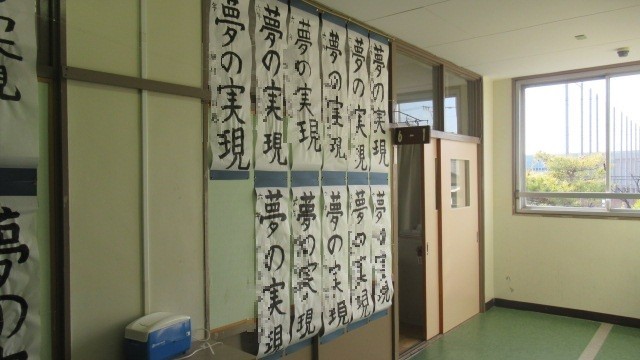 夢の実現
夢の実現
夢の実現
夢の実現
夢の実現
夢の実現
夢の実現
夢の実現
夢の実現
夢の実現
夢の実現
6-1
実現
夢の